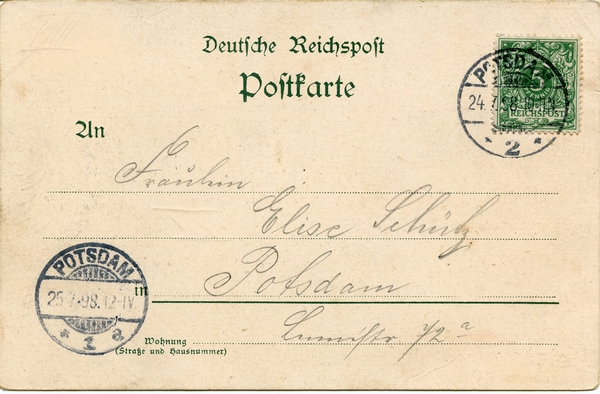 Deutsche Reichspost
Postkarte
POTSDAM
24.7.98.
2
5
REICHSPOST
An
Fräulein
Elise Schütz
POTSDAM
25.7.98.12-1V.
1 a
in
Potsdam
Wohnung
(Straße und Hausnummer)
72a